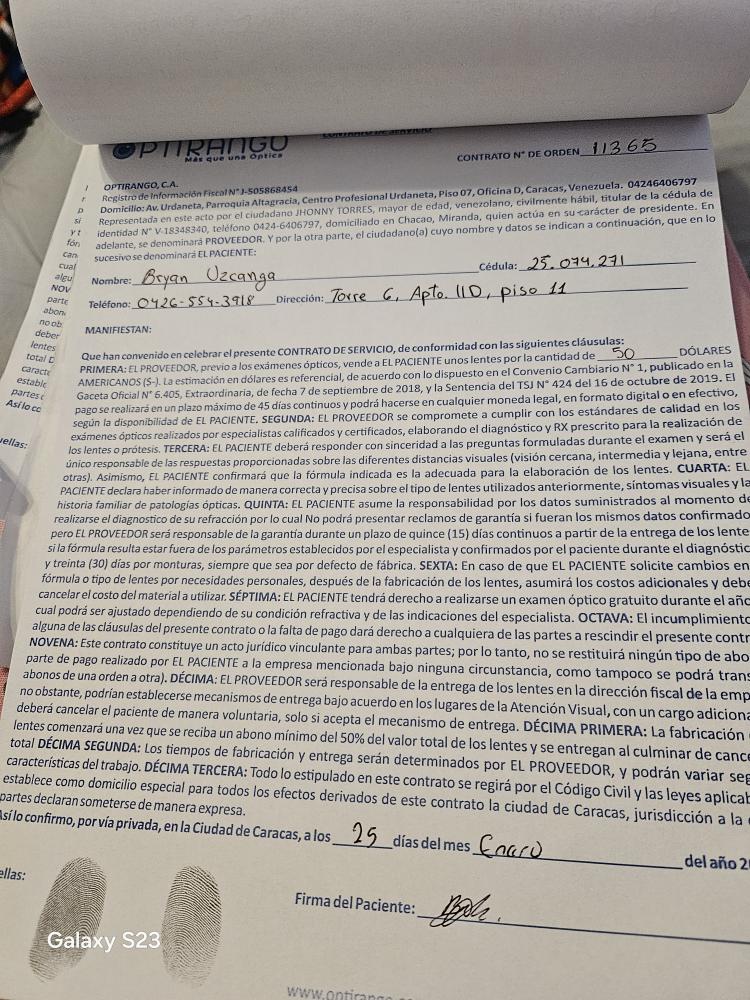 OPTIRANGO
Más que una Óptica
CONTRATO DE SERVICIO
CONTRATO N° DE ORDEN 11365
OPTIRANGO, C.A.
Registro de Información Fiscal N° J-505868454
Domicilio: Av. Urdaneta, Parroquia Altagracia, Centro Profesional Urdaneta, Piso 07, Oficina D, Caracas, Venezuela. 04246406797
Representada en este acto por el ciudadano JHONNY TORRES, mayor de edad, venezolano, civilmente hábil, titular de la cédula de
identidad N° V-18348340, teléfono 0424-6406797, domiciliado en Chacao, Miranda, quien actúa en su carácter de presidente. En
adelante, se denominará PROVEEDOR. Y por la otra parte, el ciudadano(a) cuyo nombre y datos se indican a continuación, que en lo
sucesivo se denominará EL PACIENTE:
Nombre: Bryan Uzcanga Cédula: 25.074.271
Teléfono: 0426-554-3918 Dirección: Torre 6, Apto. 11D, piso 11
MANIFIESTAN:
Que han convenido en celebrar el presente CONTRATO DE SERVICIO, de conformidad con las siguientes cláusulas:
PRIMERA: EL PROVEEDOR, previo a los exámenes ópticos, vende a EL PACIENTE unos lentes por la cantidad de 50 DÓLARES
AMERICANOS ($-). La estimación en dólares es referencial, de acuerdo con lo dispuesto en el Convenio Cambiario N° 1, publicado en la
Gaceta Oficial N° 6.405, Extraordinaria, de fecha 7 de septiembre de 2018, y la Sentencia del TSJ N° 424 del 16 de octubre de 2019. El
pago se realizará en un plazo máximo de 45 días continuos y podrá hacerse en cualquier moneda legal, en formato digital o en efectivo,
según la disponibilidad de EL PACIENTE. SEGUNDA: EL PROVEEDOR se compromete a cumplir con los estándares de calidad en los
exámenes ópticos realizados por especialistas calificados y certificados, elaborando el diagnóstico y RX prescrito para la realización de
los lentes o prótesis. TERCERA: EL PACIENTE deberá responder con sinceridad a las preguntas formuladas durante el examen y será el
único responsable de las respuestas proporcionadas sobre las diferentes distancias visuales (visión cercana, intermedia y lejana, entre
otras). Asimismo, EL PACIENTE confirmará que la fórmula indicada es la adecuada para la elaboración de los lentes. CUARTA: EL
PACIENTE declara haber informado de manera correcta y precisa sobre el tipo de lentes utilizados anteriormente, síntomas visuales y la
historia familiar de patologías ópticas. QUINTA: EL PACIENTE asume la responsabilidad por los datos suministrados al momento de
realizarse el diagnostico de su refracción por lo cual No podrá presentar reclamos de garantía si fueran los mismos datos confirmado
pero EL PROVEEDOR será responsable de la garantía durante un plazo de quince (15) días continuos a partir de la entrega de los lente
si la fórmula resulta estar fuera de los parámetros establecidos por el especialista y confirmados por el paciente durante el diagnóstic
y treinta (30) días por monturas, siempre que sea por defecto de fábrica. SEXTA: En caso de que EL PACIENTE solicite cambios en
fórmula o tipo de lentes por necesidades personales, después de la fabricación de los lentes, asumirá los costos adicionales y debe
cancelar el costo del material a utilizar. SÉPTIMA: EL PACIENTE tendrá derecho a realizarse un examen óptico gratuito durante el año
cual podrá ser ajustado dependiendo de su condición refractiva y de las indicaciones del especialista. OCTAVA: El incumplimiento
alguna de las cláusulas del presente contrato o la falta de pago dará derecho a cualquiera de las partes a rescindir el presente contr
NOVENA: Este contrato constituye un acto jurídico vinculante para ambas partes; por lo tanto, no se restituirá ningún tipo de abo
parte de pago realizado por EL PACIENTE a la empresa mencionada bajo ninguna circunstancia, como tampoco se podrá trans
abonos de una orden a otra). DÉCIMA: EL PROVEEDOR será responsable de la entrega de los lentes en la dirección fiscal de la emp
no obstante, podrían establecerse mecanismos de entrega bajo acuerdo en los lugares de la Atención Visual, con un cargo adiciona
deberá cancelar el paciente de manera voluntaria, solo si acepta el mecanismo de entrega. DÉCIMA PRIMERA: La fabricación
lentes comenzará una vez que se reciba un abono mínimo del 50% del valor total de los lentes y se entregan al culminar de cance
total DÉCIMA SEGUNDA: Los tiempos de fabricación y entrega serán determinados por EL PROVEEDOR, y podrán variar seg
características del trabajo. DÉCIMA TERCERA: Todo lo estipulado en este contrato se regirá por el Código Civil y las leyes aplicab
establece como domicilio especial para todos los efectos derivados de este contrato la ciudad de Caracas, jurisdicción a la
partes declaran someterse de manera expresa.
Así lo confirmo, por vía privada, en la Ciudad de Caracas, a los 25 días del mes Enero del año 2
ellas:
Firma del Paciente:
Galaxy S23